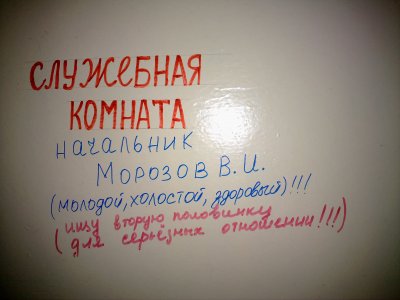 СЛУЖЕБНАЯ
КОМНАТА
НАЧАЛЬНИК
МОРОЗОВ В. И.
(МОЛОДОЙ, ХОЛОСТОЙ, ЗДОРОВЫЙ)!!!
(ищу вторую половинку
для серьёзных отношений!!!)